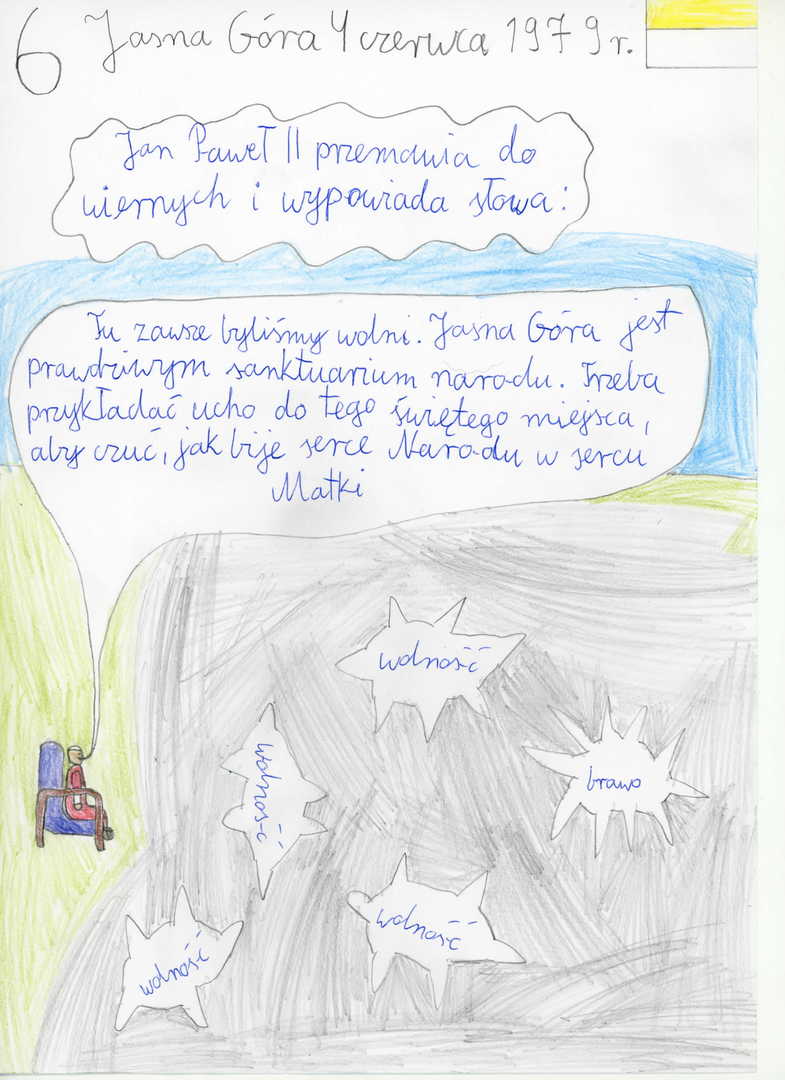 6 Jasna Góra 4 czerwca 1979 r.
Jan Paweł II przemawia do
wiernych i wypowiada słowa:
Tu zawsze byliśmy wolni. Jasna Góra jest
prawdziwym sanktuarium narodu. Trzeba
przykładać ucho do tego świętego miejsca,
aby czuć, jak bije serce Narodu w sercu
Matki
wolność
wolność
brawo
wolność
wolność